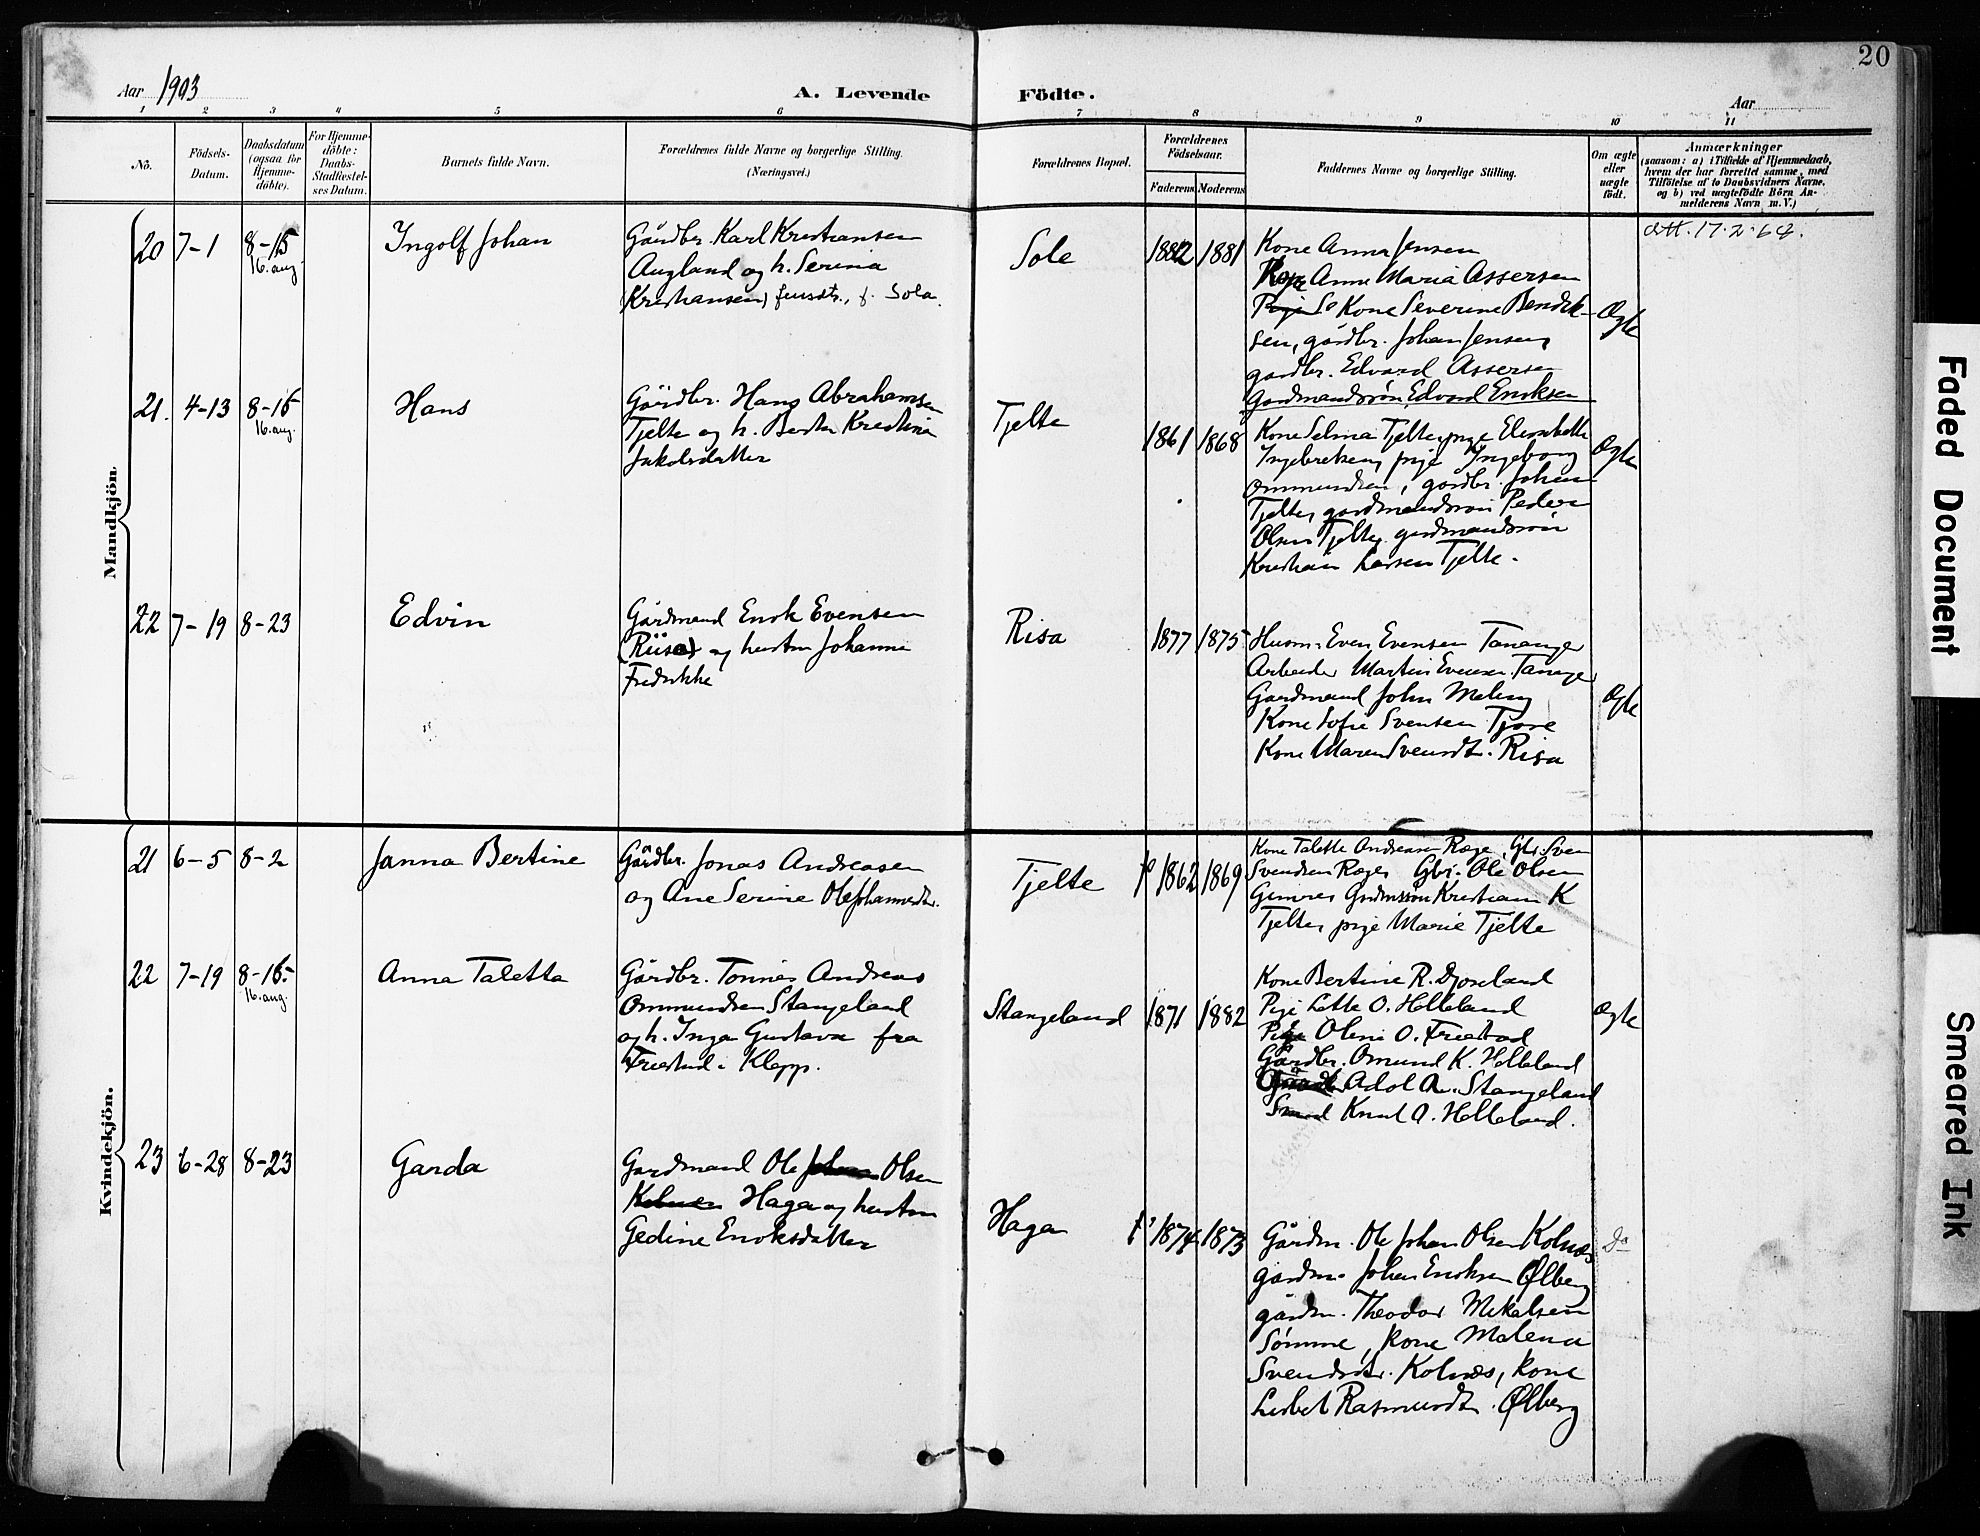 20
Aar 1903
A. Levende Födte.
Aar
1 2 3 4 5 6 7 8 9 10 11
No.
Födsels-
Datum.
Daabsdatum
(ogsaa for
Hjemme-
döbte).
For Hjemme-
döbte:
Daabs-
Stadfæstel-
ses Datum.
Barnets fulde Navn.
Forældrenes fulde Navne og borgerlige Stilling.
(Næringsvei.)
Forældrenes Bopæl.
Forældrenes
Födselsaar.
Faderens Moderens
Faddernes Navne og borgerlige Stilling.
Om ægte
eller
uægte
födt.
Anmærkninger
(saasom: a) i Tilfælde af Hjemmedaab,
hvem der har forrettet samme, med
Tilföielse af to Daabsvidners Navne,
og b) ved uægtefödte Börn An-
melderens Navn m. V.)
Mandkjön.
20 7-1 8-15
16. aug.
Ingolf Johan
Gårdbr. Karl Kristiansen
Augland og h. Serina
Kristiansen
Sole
1882 1881
Kone Anna Jensen
Pige Anne Maria Assersen
Kone Severine Bendik-
sen, gårdbr. Johan Jensen,
gardbr. Edvard Assersen
Gardmandssøn Edvard Eriksen
Ægte
att. 17.2.64.
21. 4-13 8-15
16. aug.
Hans
Gårdbr. Hans Abrahamsen
Tjelte og h. Berta Kristina
Jakobsdatter
Tjelte
1861 1868
Kone Selma Tjelte, pige Elisabeth
Ingebretsen, pige Ingeborg
Ommundsen, gårdbr. Johan
Tjelte, gardmandssøn Peder
Olsen Tjelte, gardmandssøn
Kristian Larsen Tjelte.
Ægte
22 7-19 8-23
Edvin
Gårdmand Enok Evensen
(Riisa) og hustru Johanne
Fredrikke
Risa
1877 1875
Husm. Even Evensen Tananger
Arbeider Martin Evensen Tanager
Gardmand John Meling
Kone Sofie Svensen Tjore
Kone Maren Svendsdt. Risa
Ægte
Kvindekjön.
21 6-5 8-2
Janna Bertine
Gårdbr. Jonas Andreasen
og Ane Serine Ole Johannesdtr.
Tjelte
1862 1869
Kone Talette Andreasen Ræge, Gbr. Sven
Svendsen Ræge, Gbr. Ole Olsen
Gimre, Gardmssøn Kristian K
Tjelte, pige Marie Tjelte
22 7-19 8-15
16. aug.
Anna Taletta
Gårdbr. Tønnes Andreas
Ommundsen Stangeland
og h. Inga Gustava fra
Friestad i Klepp.
Stangeland
1871 1882
Kone Bertine R. Djoseland
Pige Lette O. Helleland
Pige Oline O. Friestad
Gårdbr. Omund K. Helleland
Adol A. Stangeland
Knut A. Helleland.
Ægte
23 6-28 8-23
Garda
Gardmand Ole Johan Olsen
Kolnes Haga og hustru
Gedine Enoksdatter
Haga
1874 1873
Gårdm. Ole Johan Olsen Kolnæs
gårdm. Johan Eriksen Ølberg
gårdm. Theodor Mikalsen
Sømme, kone Malena
Svendsdtr. Kolnæs, kone
Lisbet Rasmusdt. Ølberg
Do
Faded Document
Smeared Ink